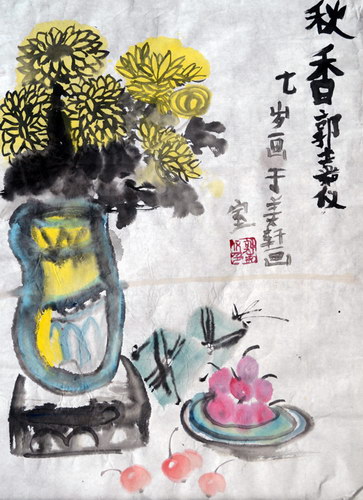 秋香郭嘉仪
七岁画于美轩画
室